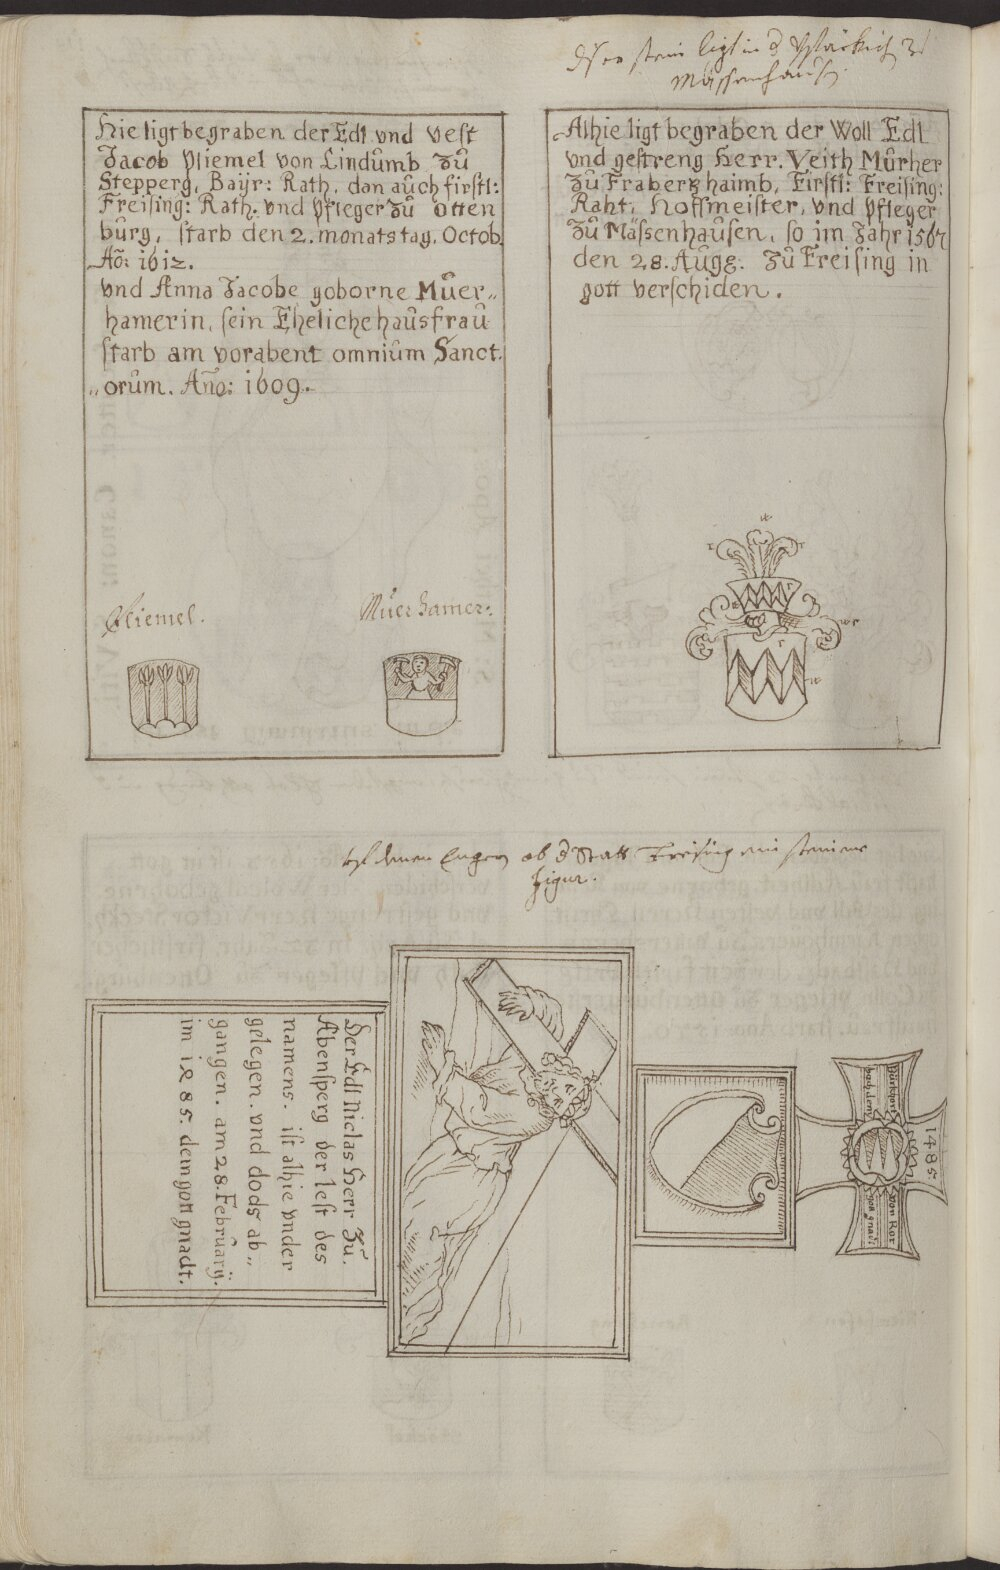 diser stein ligt in d Pfarkirch zu
Mässenhausen.
Hie ligt begraben der Edl vnd vest
Jacob Pliemel von Lindumb zu
Stepperg, Bayr: Rath, dan auch firstl:
Freising: Rath. vnd Pfleger zu Otten
burg, starb den 2. monats tag, Octob.
Ao: 1612.
vnd Anna Jacobe goborne Müer„
hamerin, sein Eheliche hausfrau
starb am vorabent omnium Sanct.
„orum. Año: 1609.
Pliemel.
Müerhamer:
Alhie ligt begraben der Woll Edl
vnd gestreng Herr. Veith Mürher
zu Fraberghaimb, Firstl: Freising:
Raht, Hoffmeister, vnd Pfleger
zu Mässenhausen, so im Jahr 1567
den 28. Augg. zu Freising in
gott verschiden.
ob d Statt Freising ein steinene
figur.
Der Edl Niclas Herr zu.
Abensperg der lest des
namens. ist alhie vnder
gelegen. vnd dods ab„
gangen. am 28. Februarÿ.
im 1485. dem gott gnadt.
1485.
von Ror
gott gnadt